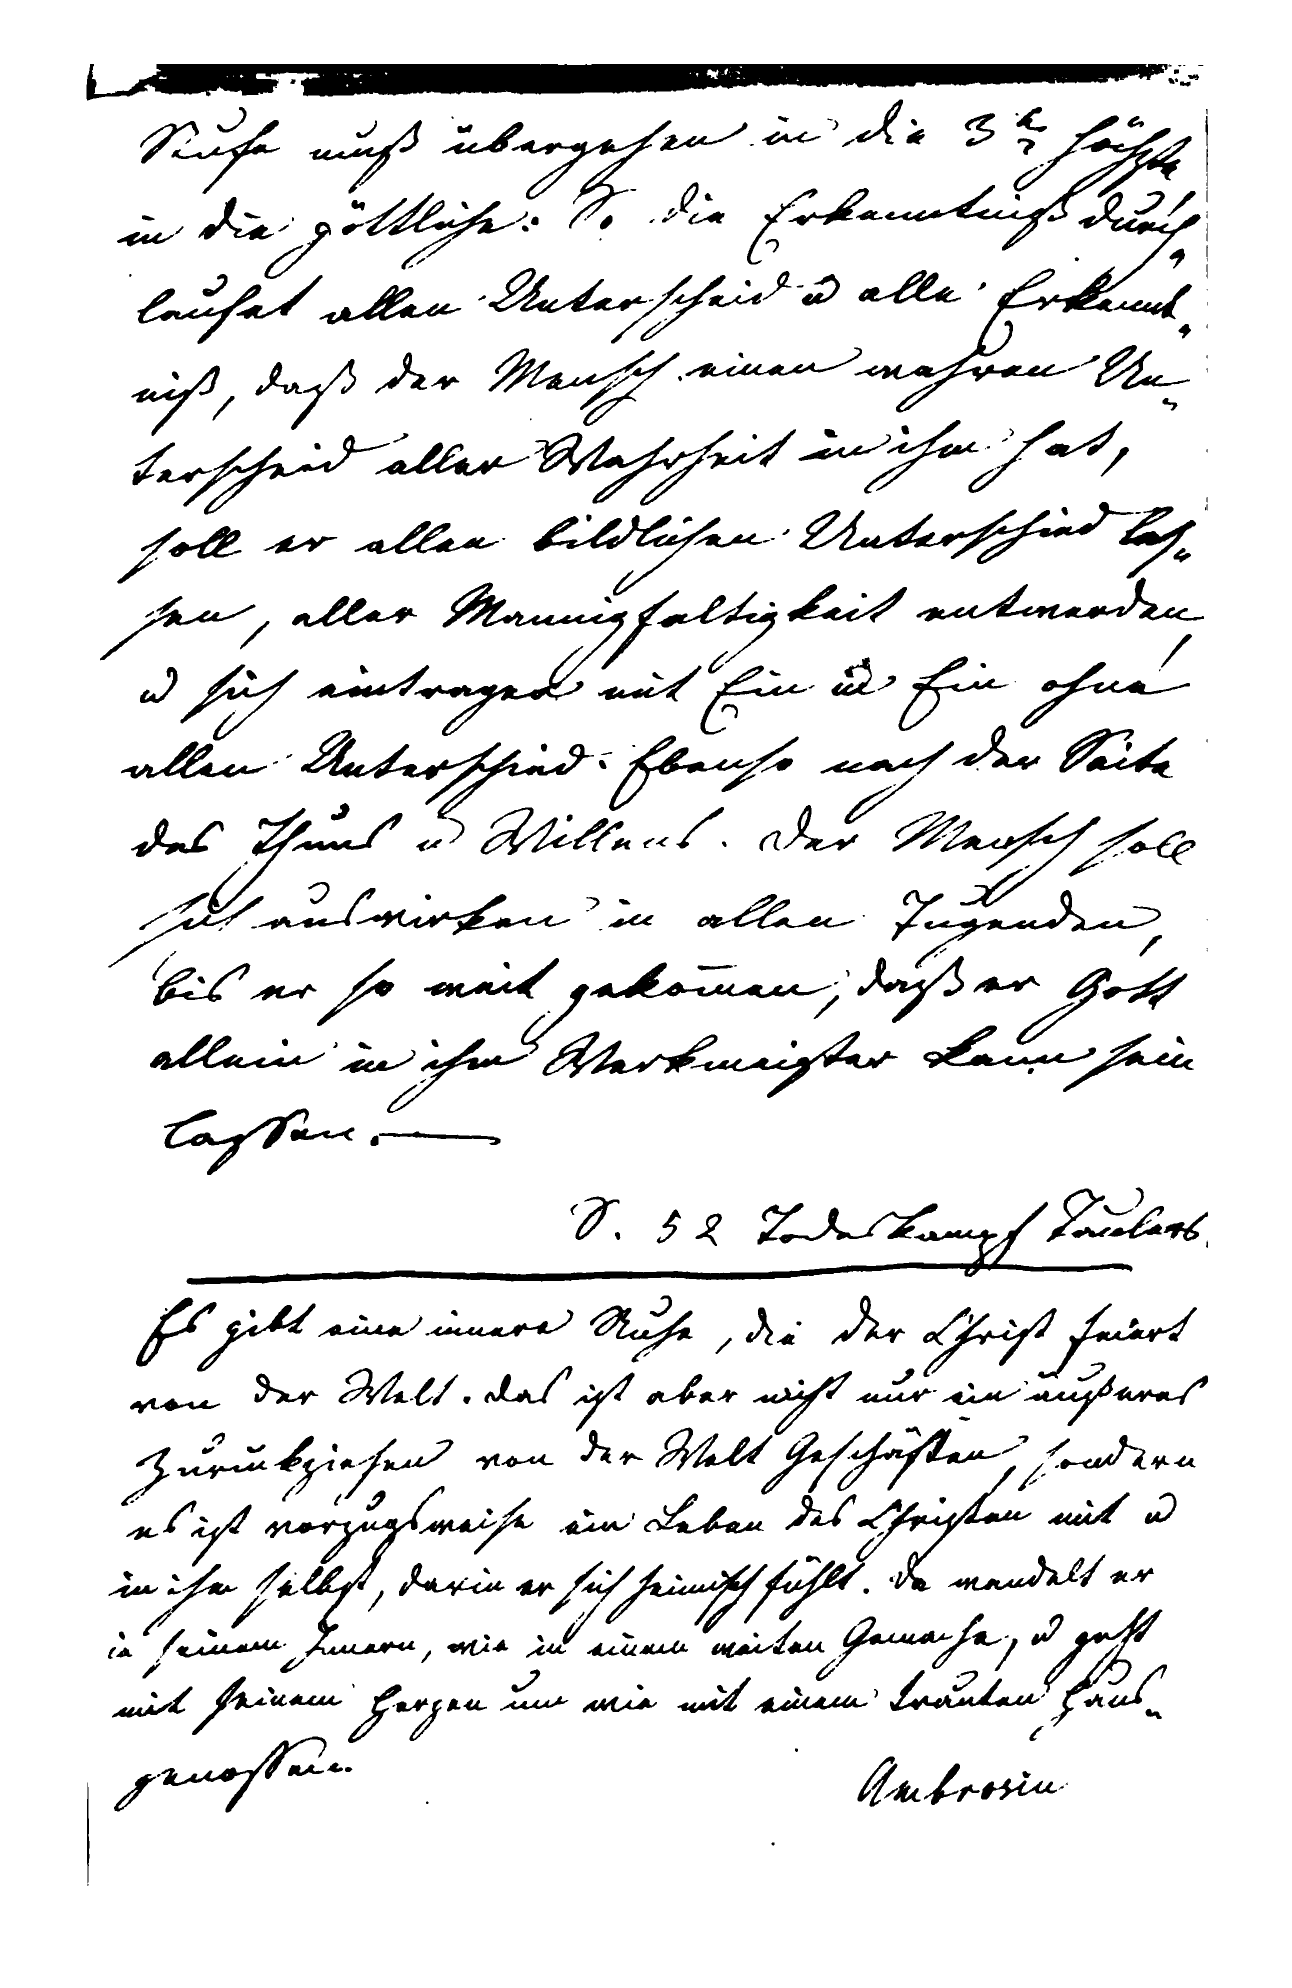 Stufe muß übergehen in die 3te höchste
in die göttliche: So die Erkenntniß durch-
laufet allen Unterscheid u alle Erkennt-
niß, daß der Mensch einen wahren Un-
terscheid aller Wahrheit in ihm hat,
soll er allen bildlichen Unterschied las-
sen, aller Mannigfaltigkeit entwerden,
u sich eintragen mit Ein in Ein ohne
allen Unterschied. Ebenso nach der Seite
des Thuns u Willens. Der Mensch soll
sich auswirken in allen Tugenden,
bis er so weit gekom̅en, daß er Gott
allein in ihm Werkmeister kann sein
lassen.—
S. 52 Todeskampf Taulers.
Es gibt eine innere Ruhe, die der Christ feiert
von der Welt. Das ist aber nicht nur ein äußeres
Zurückziehen von der Welt Geschäften, sondern
es ist vorzugsweise ein Leben des Christen mit u
in ihm selbst, darin er sich heimisch fühlt. Da wandelt er
in seinem Innern, wie in einem weiten Gemache, u geht
mit seinem Herzen um wie mit einem trauten Haus-
genossen.
Ambrosin